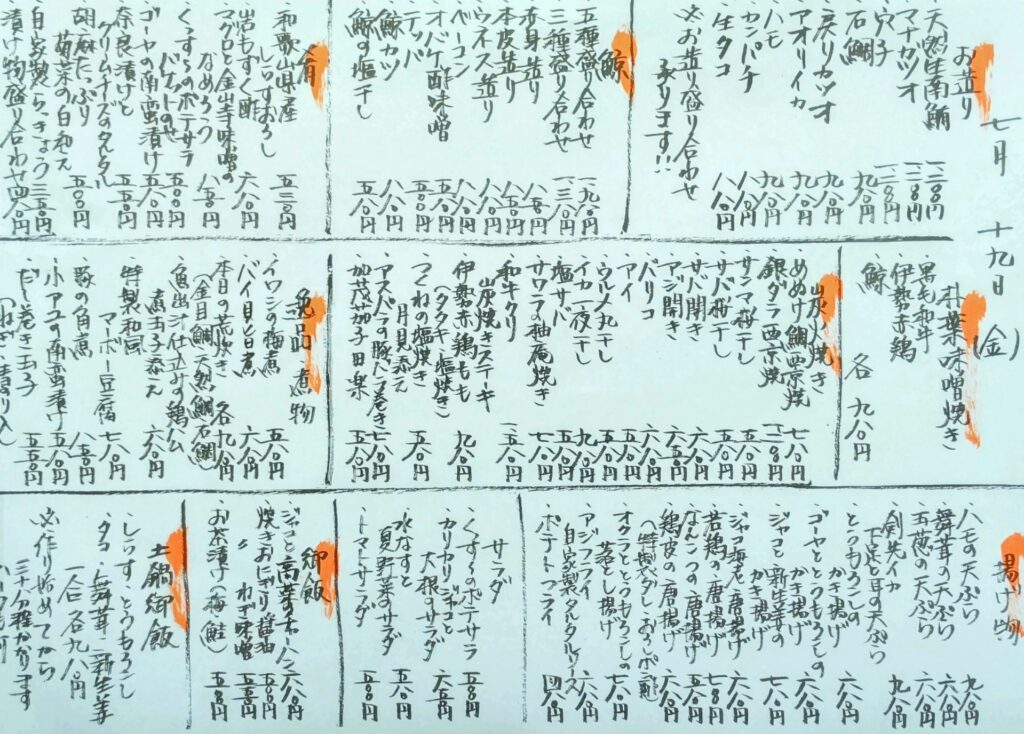 七月 十九日 (金)
お造り
天然生南鮪 一二〇〇円
マナガツオ 一一八〇円
穴子 一二〇〇円
石鯛 九八〇円
戻りカツオ 九八〇円
アオリイカ 九八〇円
ハモ 九八〇円
カンパチ 八八〇円
生タコ 八八〇円
※お造り盛り合わせ
承ります!!
鯨
五種盛り合わせ 一九八〇円
三種盛り合わせ 一三八〇円
赤身造り 八五〇円
本皮造り 八五〇円
ウネス造り 八八〇円
ベーコン 八八〇円
オバケ酢味噌
テッパ
鯨カツ 八八〇円
鯨の塩干し 五八〇円
肴
和歌山県産
しらすおろし 五三〇円
岩もずく酢 六八〇円
マグロと金山寺味噌の
なめろう 八五〇円
くっするのポテサラ
バゲットのせ 五五〇円
ゴーヤの南蛮漬け 五八〇円
奈良漬けと
クリームチーズのタルタル 五五〇円
胡麻たっぷり
菊菜の白和え 五五〇円
自家製らっきょう 三五〇円
漬け物盛り合わせ 四八〇円
朴葉味噌焼き
黒毛和牛
伊勢赤鶏
鯨
各 九八〇円
炭火焼き
めぬけ鯛西京焼 七八〇円
銀ダラ西京焼 一二〇〇円
サンマ桜干し 五五〇円
サバ桜干し 五五〇円
サバ開き 六八〇円
アジ開き 六五〇円
バリコ 六八〇円
アイ 五五〇円
ウルメ丸干し 五五〇円
イカ一夜干し 九八〇円
塩サバ 五五〇円
サワラの柚庵焼き 七八〇円
和牛クリ
炭焼きステーキ 一五八〇円
伊勢赤鶏もも
(タタキ・塩焼き) 九八〇円
つくねの塩焼き
月見添え 五八〇円
アスパラの豚バラ巻き 七八〇円
加茂茄子田楽 五八〇円
逸品・煮物
イワシの梅煮 五八〇円
バイ貝旨煮 六八〇円
本日の荒炊き 各九八〇円
(金目鯛・天然鯛・石鯛)
魚出汁仕立みの鶏ハム
煮玉子添え 六八〇円
特製和風
マーボー豆腐 七八〇円
豚の角煮 八五〇円
小アユの南蛮漬け 五八〇円
だし巻き玉子 五五〇円
揚げ物
ハモの天ぷら 九八〇円
舞茸の天ぷら 六八〇円
玉葱の天ぷら 六八〇円
剣先イカ
下足と耳の天ぷら 九八〇円
とうもろこしの
かき揚げ 六八〇円
ゴーヤととうもろこしの
かき揚げ 六八〇円
ジャコと新生姜の
かき揚げ 七八〇円
ジャコ海老の唐揚げ 六八〇円
若鶏の唐揚げ 七八〇円
なんこつの唐揚げ 五五〇円
鶏皮の唐揚げ 六八〇円
(特製ダレ・おろしポン酢)
オクラととうもろこしの
落とし揚げ 七八〇円
アジフライ
自家製タルタルソース 六八〇円
ポテトフライ 四八〇円
サラダ
くっするのポテサラ 五五〇円
カリカリジャコと
大根のサラダ 六五〇円
水なすと
夏野菜のサラダ 五五〇円
トマトサラダ 五五〇円
御飯
ジャコと高菜のチャーハン 六八〇円
焼きおにぎり醤油 五〇〇円
〃 ねぎ味噌 五五〇円
お茶漬け(梅・鮭) 五五〇円
土鍋御飯
しらす・とうもろこし
タコ・舞茸・新生姜
一合 各九八〇円
※作り始めてから
三十分程かかります